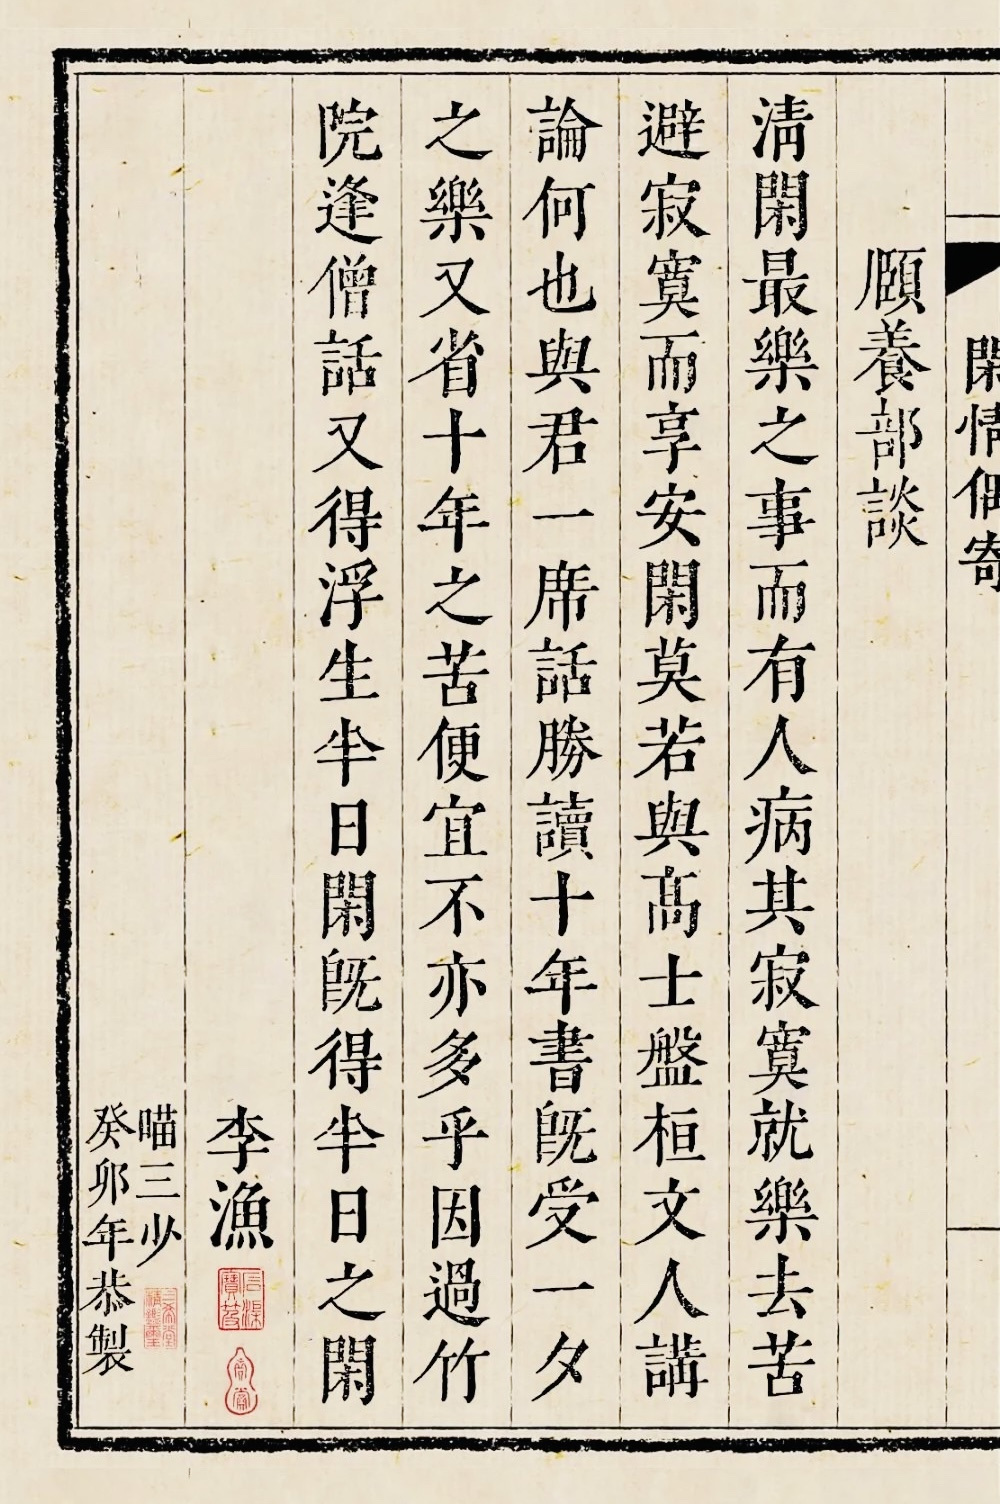 閑情偶寄
頤養部談
清閑最樂之事而有人病其寂寞就樂去苦
避寂寞而享安閑莫若與髙士盤桓文人講
論何也與君一席話勝讀十年書旣受一夕
之樂又省十年之苦便宜不亦多乎因過竹
院逢僧話又得浮生半日閑旣得半日之閑
李漁
喵三少
癸卯年恭製